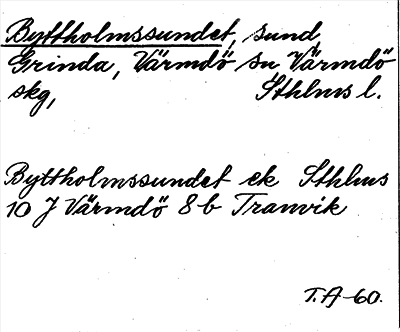 Byttholmssundet, sund,
Grinda, Värmdö sn Värmdö
skg, Sthlms l.
Byttholmssundet ek Sthlms
10 J Värmdö 8b Tranvik
T.A-60.